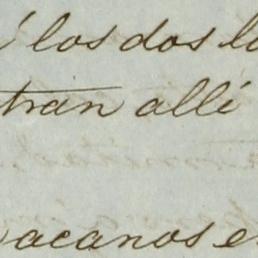 los dos
tran allé
acanos e